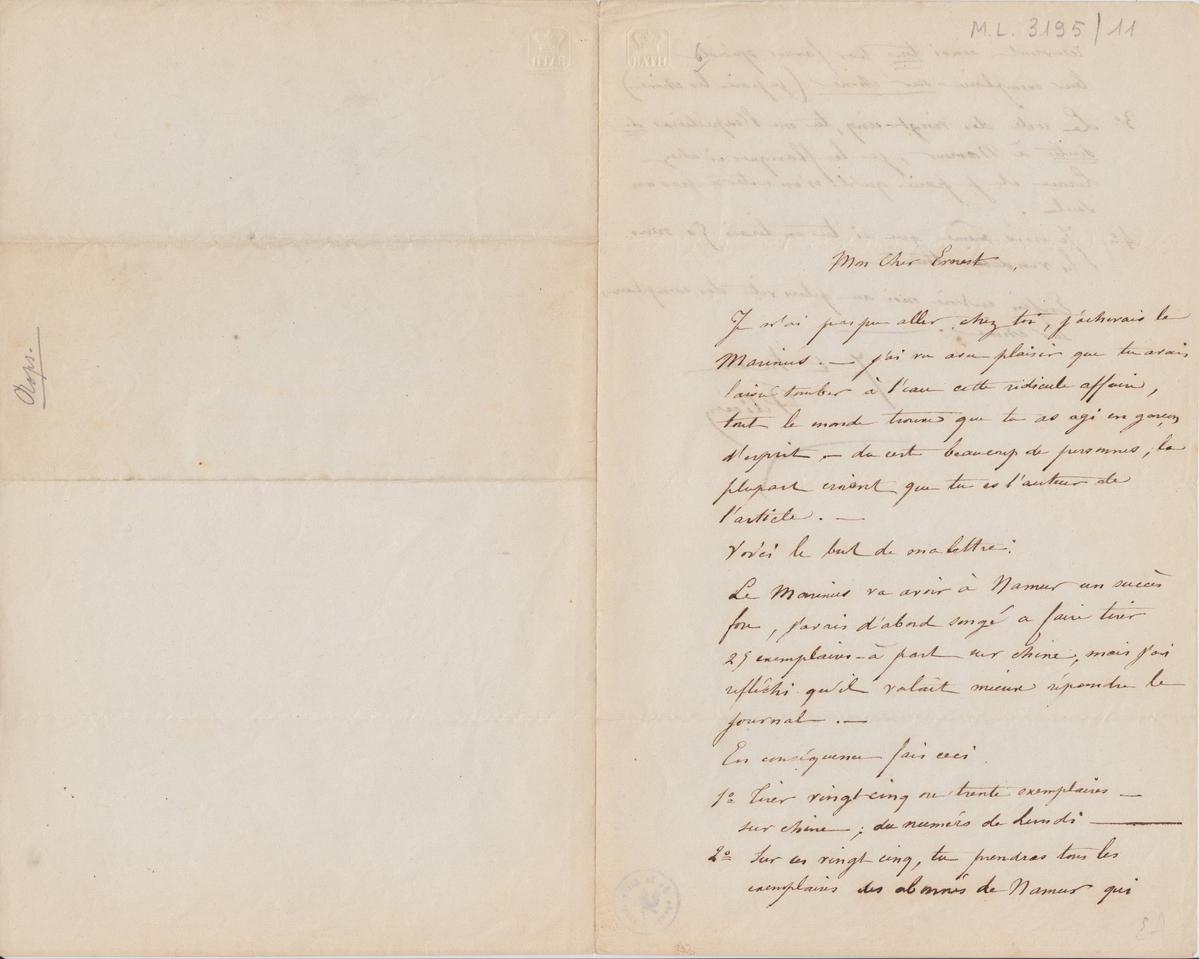 Rops.
M.L. 3195/11
Mon Cher Ernest,
Je n'ai pas pu aller chez toi, j'acherais le
Marinus. — j'ai vu avec plaisir que tu avais
laissé tomber à l'eau cette ridicule affaire,
tout le monde trouve que tu as agi en garçon
d'esprit, — du reste beaucoup de personnes, la
plupart croient que tu es l'auteur de
l'article. —
Voici le but de ma lettre:
Le Marinus va avoir à Namur un succès
fou, j'avais d'abord songé a faire tirer
25 exemplaires à part sur chine, mais j'ai
réfléchi qu'il valait mieux répandre le
journal. —
En conséquence fais ceci
1º Tirer vingt-cinq ou trente exemplaires —
sur chine; du numéro de Lundi —
2º Sur ces vingt cinq, tu prendras tous les
exemplaires des abonnés de Namur qui